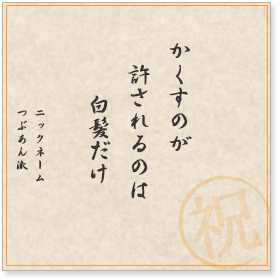 かくすのが
許されるのは
白髪だけ
ニックネーム
つぶあん派
祝